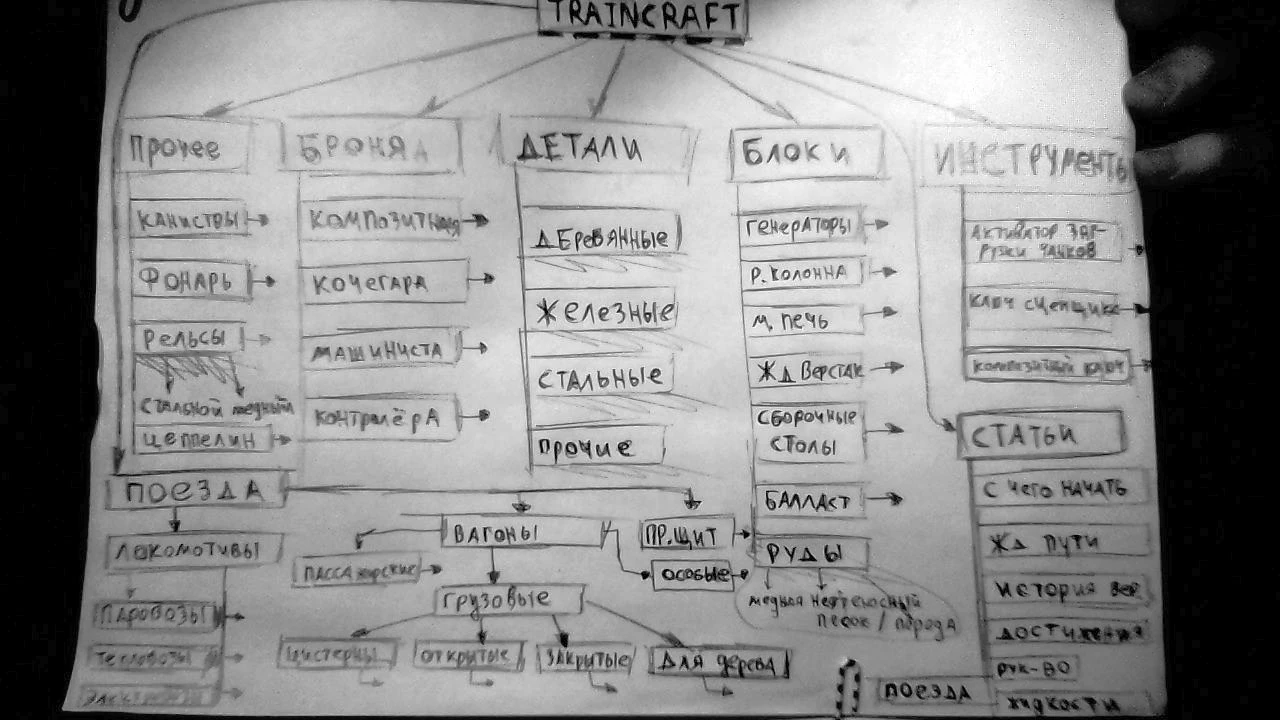 TRAINCRAFT
Прочее
БРОНЯ
ДЕТАЛИ
БЛОКИ
ИНСТРУМЕНТЫ
КАНИСТРЫ
ФОНАРЬ
РЕЛЬСЫ
СТАЛЬНОЙ медный
ЦЕППЕЛИН
КОМПОЗИТНАЯ
КОЧЕГАРА
МАШИНИСТА
КОНТРОЛЁРА
ДЕРЕВЯННЫЕ
ЖЕЛЕЗНЫЕ
СТАЛЬНЫЕ
ПРОЧИЕ
ГЕНЕРАТОРЫ
Р. КОЛОННА
М. ПЕЧЬ
ЖД ВЕРСТАК
СБОРОЧНЫЕ
СТОЛЫ
БАЛЛАСТ
РУДЫ
медная нефтеносный
песок / порода
АКТИВАТОР ЗАГ-
РУЗКИ ЧАНКОВ
КЛЮЧ СЦЕПЩИКА
КОМПОЗИТНЫЙ КЛЮЧ
СТАТЬИ
С ЧЕГО НАЧАТЬ
ЖД ПУТИ
ИСТОРИЯ ВЕР
ДОСТИЖЕНИЯ
РУК-ВО
ПОЕЗДА
ЖИДКОСТИ
ПОЕЗДА
ЛОКОМОТИВЫ
ПАРОВОЗЫ
ТЕПЛОВОЗЫ
ВАГОНЫ
ПР. ЩИТ
ПАССАЖИРСКИЕ
ОСОБЫЕ
ГРУЗОВЫЕ
ЦИСТЕРНЫ
ОТКРЫТЫЕ
ЗАКРЫТЫЕ
ДЛЯ дерева